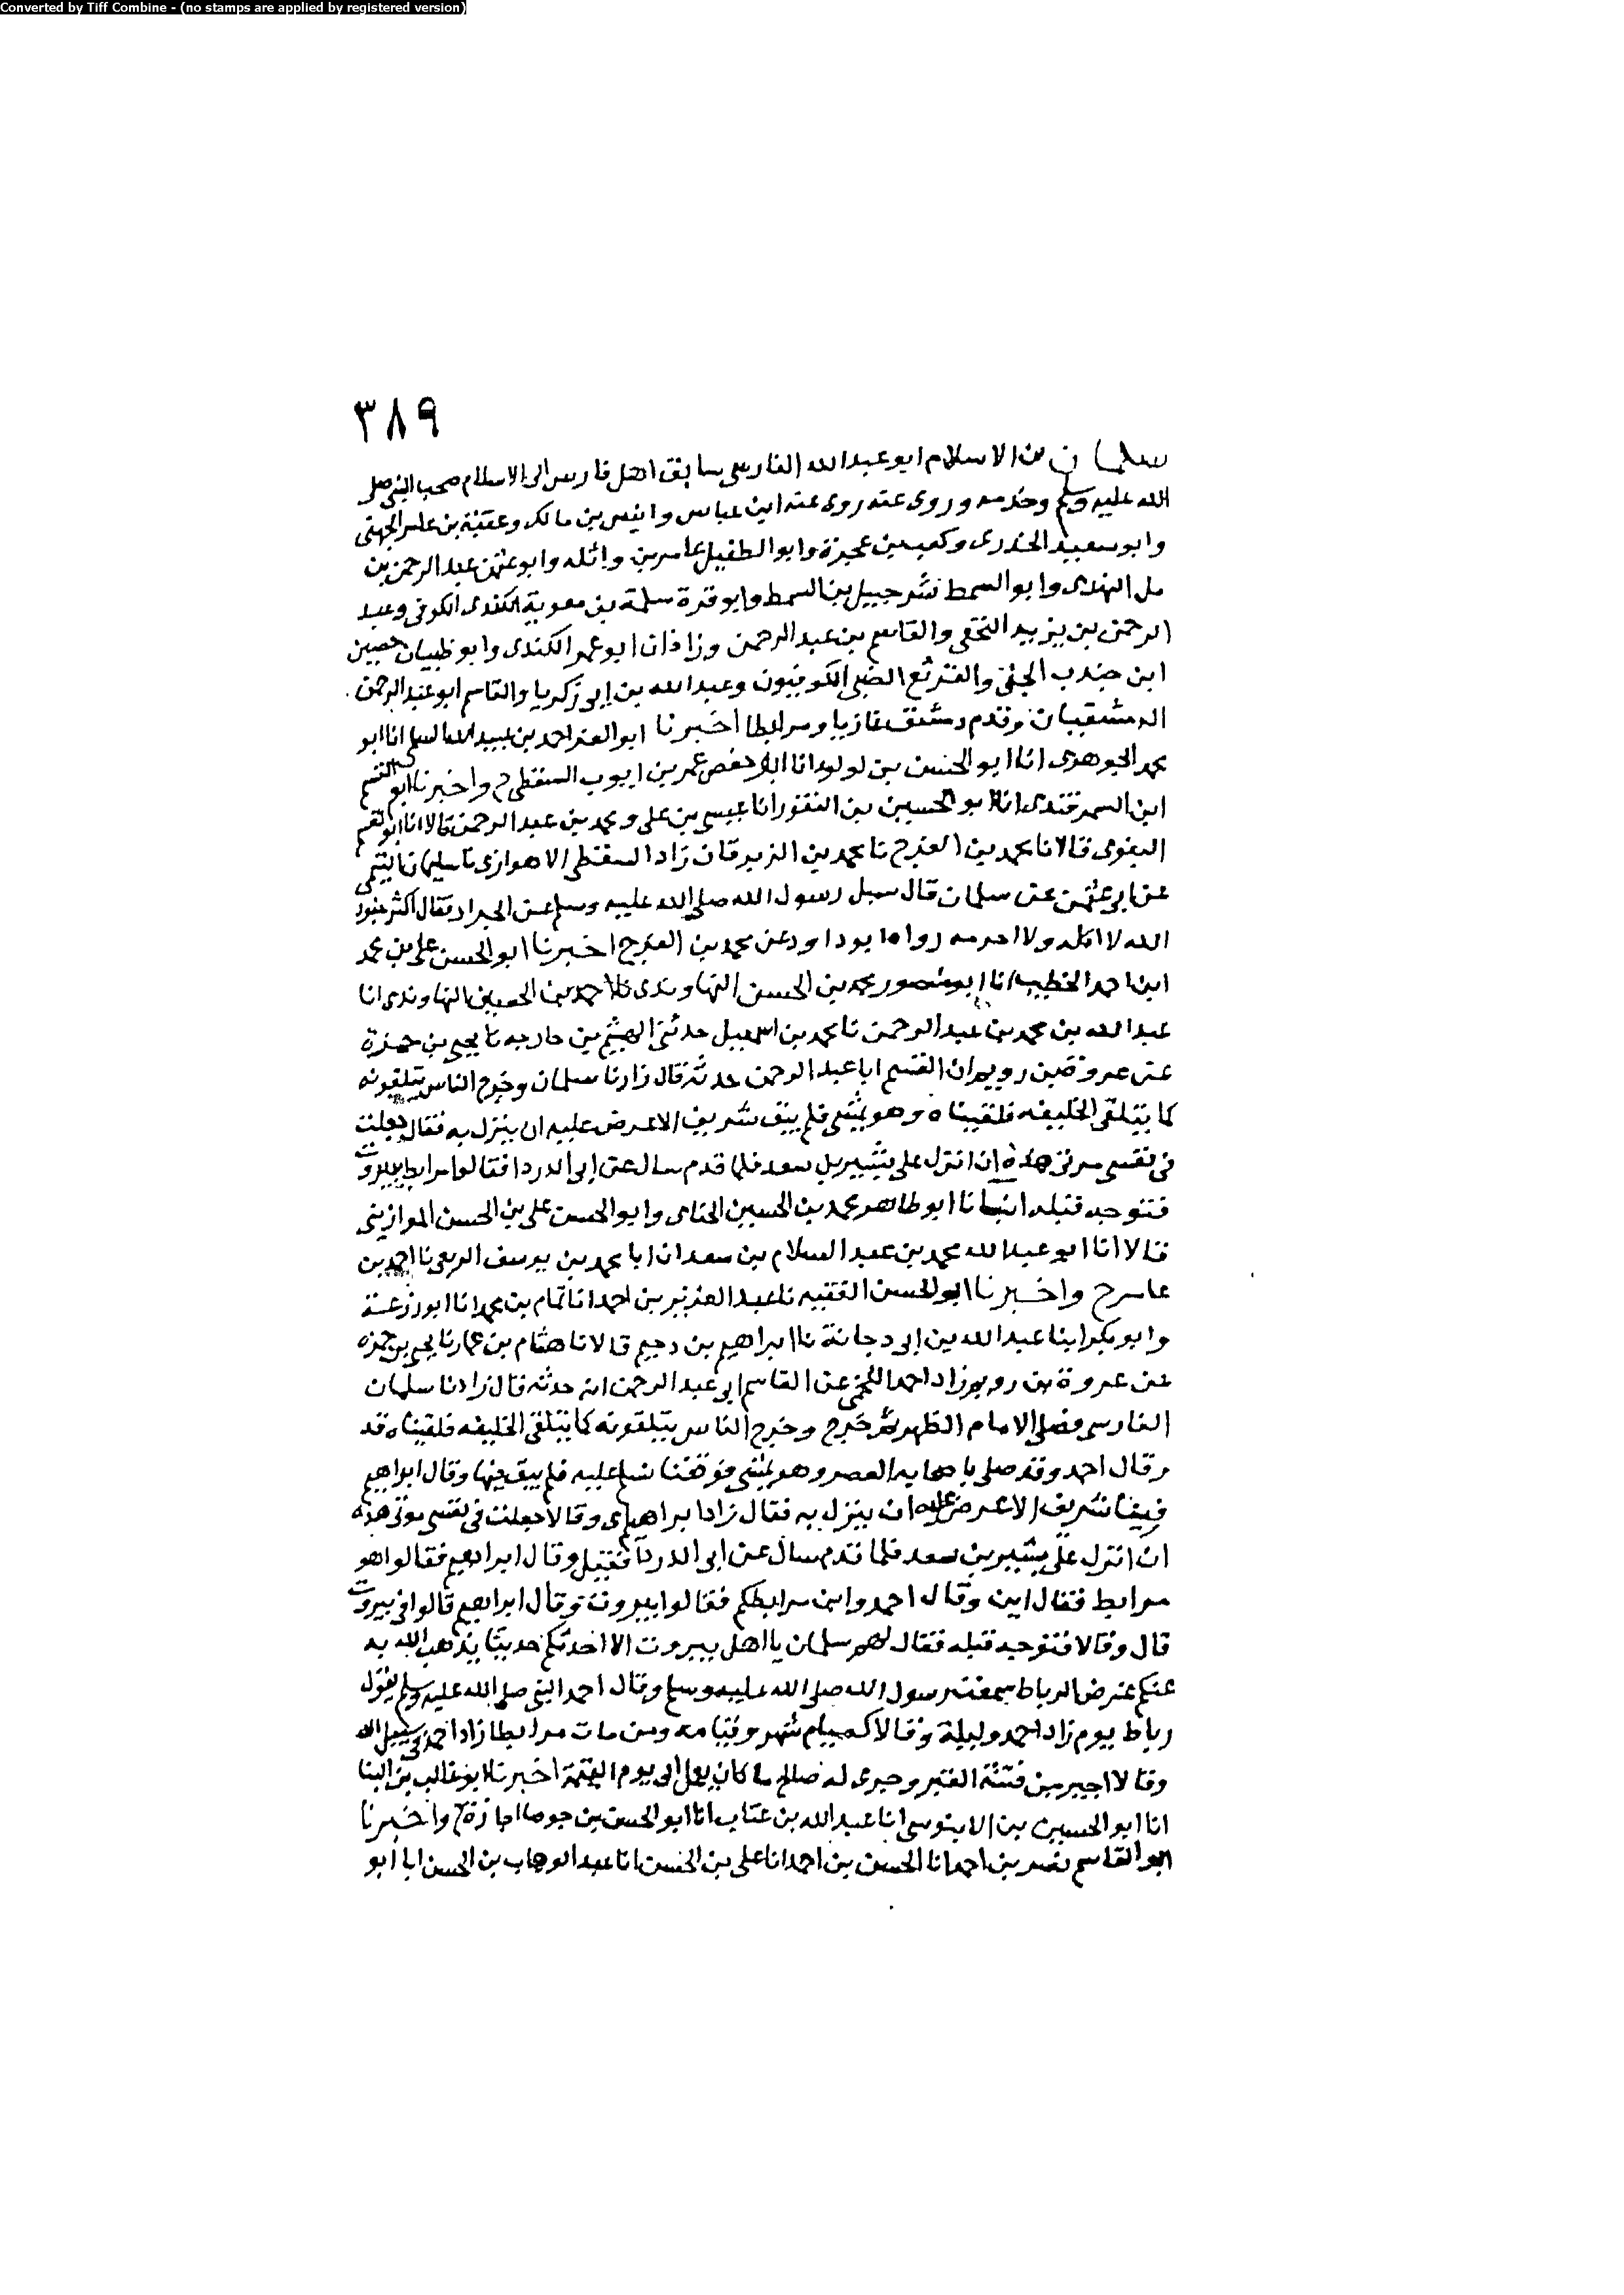 Converted by Tiff Combine - (no stamps are applied by registered version)
٣٨٩
سلمان بن الاسلام ابو عبدالله الفارسى سابق اهل فارس الى الاسلام صحب النبى صلى
الله عليه وسلم وخدمه وروى عنه روى عنه ابن عباس وانس بن مالك وعقبة بن عامر الجهنى
وابو سعيد الخدرى وكعب بن عجرة وابو الطفيل عامر بن واثله وابو عثمن عبد الرحمن بن
مل النهدى وابو السمط شرحبيل بن السمط وابو قرة سلمة بن معوية الكندى الكوفى وعبد
الرحمن بن يزيد النخعى والقاسم بن عبد الرحمن وزاذان ابو عمر الكندى وابو ظبيان حصين
ابن جندب الجنبى والقرثع الضبى الكوفيون وعبد الله بن ابى زكريا والقاسم ابو عبد الرحمن
الدمشقيان وقدم دمشق غازيا ومرابطا اخبرنا ابو العز احمد بن عبيد الله السلمى انا ابو
محمد الجوهرى انا ابو الحسن بن لولو انا ابو حفص عمر بن ايوب السقطى ح واخبرنا ابو القسم
ابن السمرقندى انا ابو الحسين بن النقور انا عيسى بن على ومحمد بن عبد الرحمن قالا انا ابو القسم
البغوى قالا نا محمد بن الفرج نا محمد بن الزبرقان زاد السقطى الاهوازى نا سليمان التيمى
عن ابى عثمن عن سلمان قال سيل رسول الله صلى الله عليه وسلم عن الجراد فقال اكثر جنود
الله لا اكله ولا احرمه رواه ابو داود عن محمد بن الفرج اخبرنا ابو الحسن على بن محمد
ابن احمد الخطيب انا ابو منصور محمد بن الحسن النهاوندى نا احمد بن الحسين النهاوندى انا
عبد الله بن محمد بن عبد الرحمن نا محمد بن اسمعيل حدثنى الهيثم بن خارجه نا يحيى بن حمزة
عن عروة بن رويم ان القسم ابا عبد الرحمن حدثه قال زارنا سلمان وخرج الناس يتلقونه
كما يتلقى الخليفه فلقيناه وهو يمشى فلم يبق شريف الا عرض عليه ان ينزل به فقال جعلت
فى نفسى مرتى هذه ان انزل على بشير بن سعد فلما قدم سال عن ابى الدردا فقالوا مرابط ببيروت
فتوجه قبله انبانا ابو طاهر محمد بن الحسين الحنائى وابو الحسن على بن الحسن الموازينى
قالا انا ابو عبد الله محمد بن عبد السلام بن سعدان ابا محمد بن يوسف الربعى نا احمد بن
عامر ح واخبرنا ابو الحسن الفقيه نا عبد العزيز بن احمد انا تمام بن محمد انا ابو زرعة
وابو بكر ابنا عبد الله بن ابى دجانة نا ابراهيم بن دحيم قالا نا هشام بن عمار نا يحيى بن حمزه
عن عروة بن رويم زاد احمد اللخمى عن القاسم ابى عبد الرحمن انه حدثه قال زارنا سلمان
الفارسى فصلى الامام الظهر ثم خرج وخرج الناس يتلقونه كما يتلقى الخليفه فلقيناه قد
وقال احمد وقد صلى باصحابه العصر وهو يمشى فوقفنا نسلم عليه فلم يبق فيها وقال ابراهيم
فينا شريف الا عرض عليه ان ينزل به فقال زاد ابراهيم وقالا جعلت فى نفسى مرتى هذه
ان انزل على بشير بن سعد فلما قدم سال عن ابى الدردآ فقيل وقال ابراهيم فقالوا هو
مرابط فقال اين وقال احمد واين مرابطكم فقالوا بيروت وقال ابراهيم قالوا فى بيروت
قال وقالا فتوجه قبله فقال لهم سلمان يا اهل بيروت الا احدثكم حديثا يذهب الله به
عنكم عرض الرباط سمعت رسول الله صلى الله عليه وسلم وقال احمد النبى صلى الله عليه وسلم يقول
رباط يوم زاد احمد وليلة وقالا كصيام شهر وقيامه ومن مات مرابطا زاد احمد فى سبيل الله
وقالا اجير من فتنة القبر وجرى له صالح ما كان يعمل الى يوم القيمة اخبرنا ابو غالب بن البنا
انا ابو الحسين بن الابنوسى انا عبد الله بن عتاب انا ابو الحسن بن جوصا اجازة ح واخبرنا
ابو القاسم نصر بن احمد انا الحسن بن احمد انا على بن الحسن انا عبد الوهاب بن الحسن ابا ابو